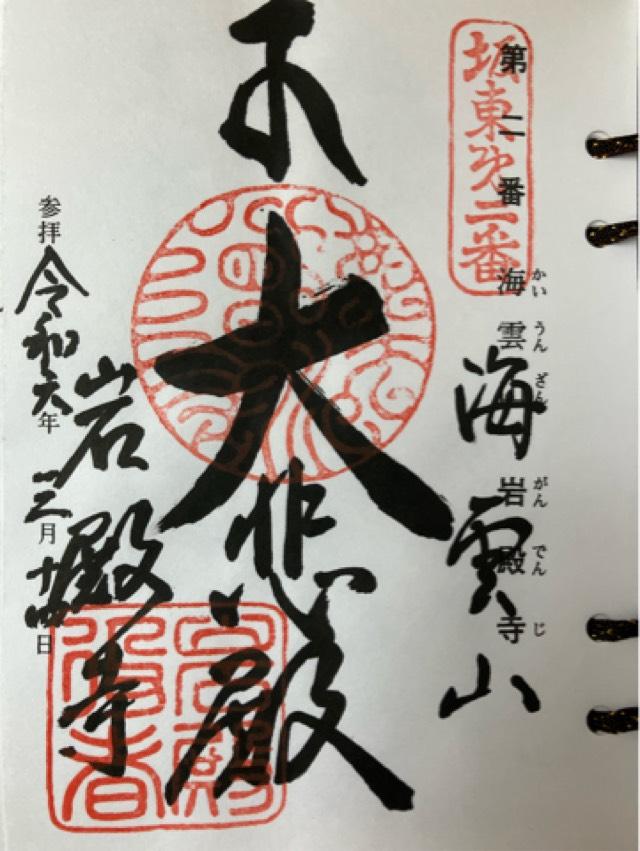 坂東第二番
第二番 海雲山 岩殿寺
かいうんざん がんでんじ
海雲山
大悲殿
岩殿寺
参拝 令和六年 三月十四日